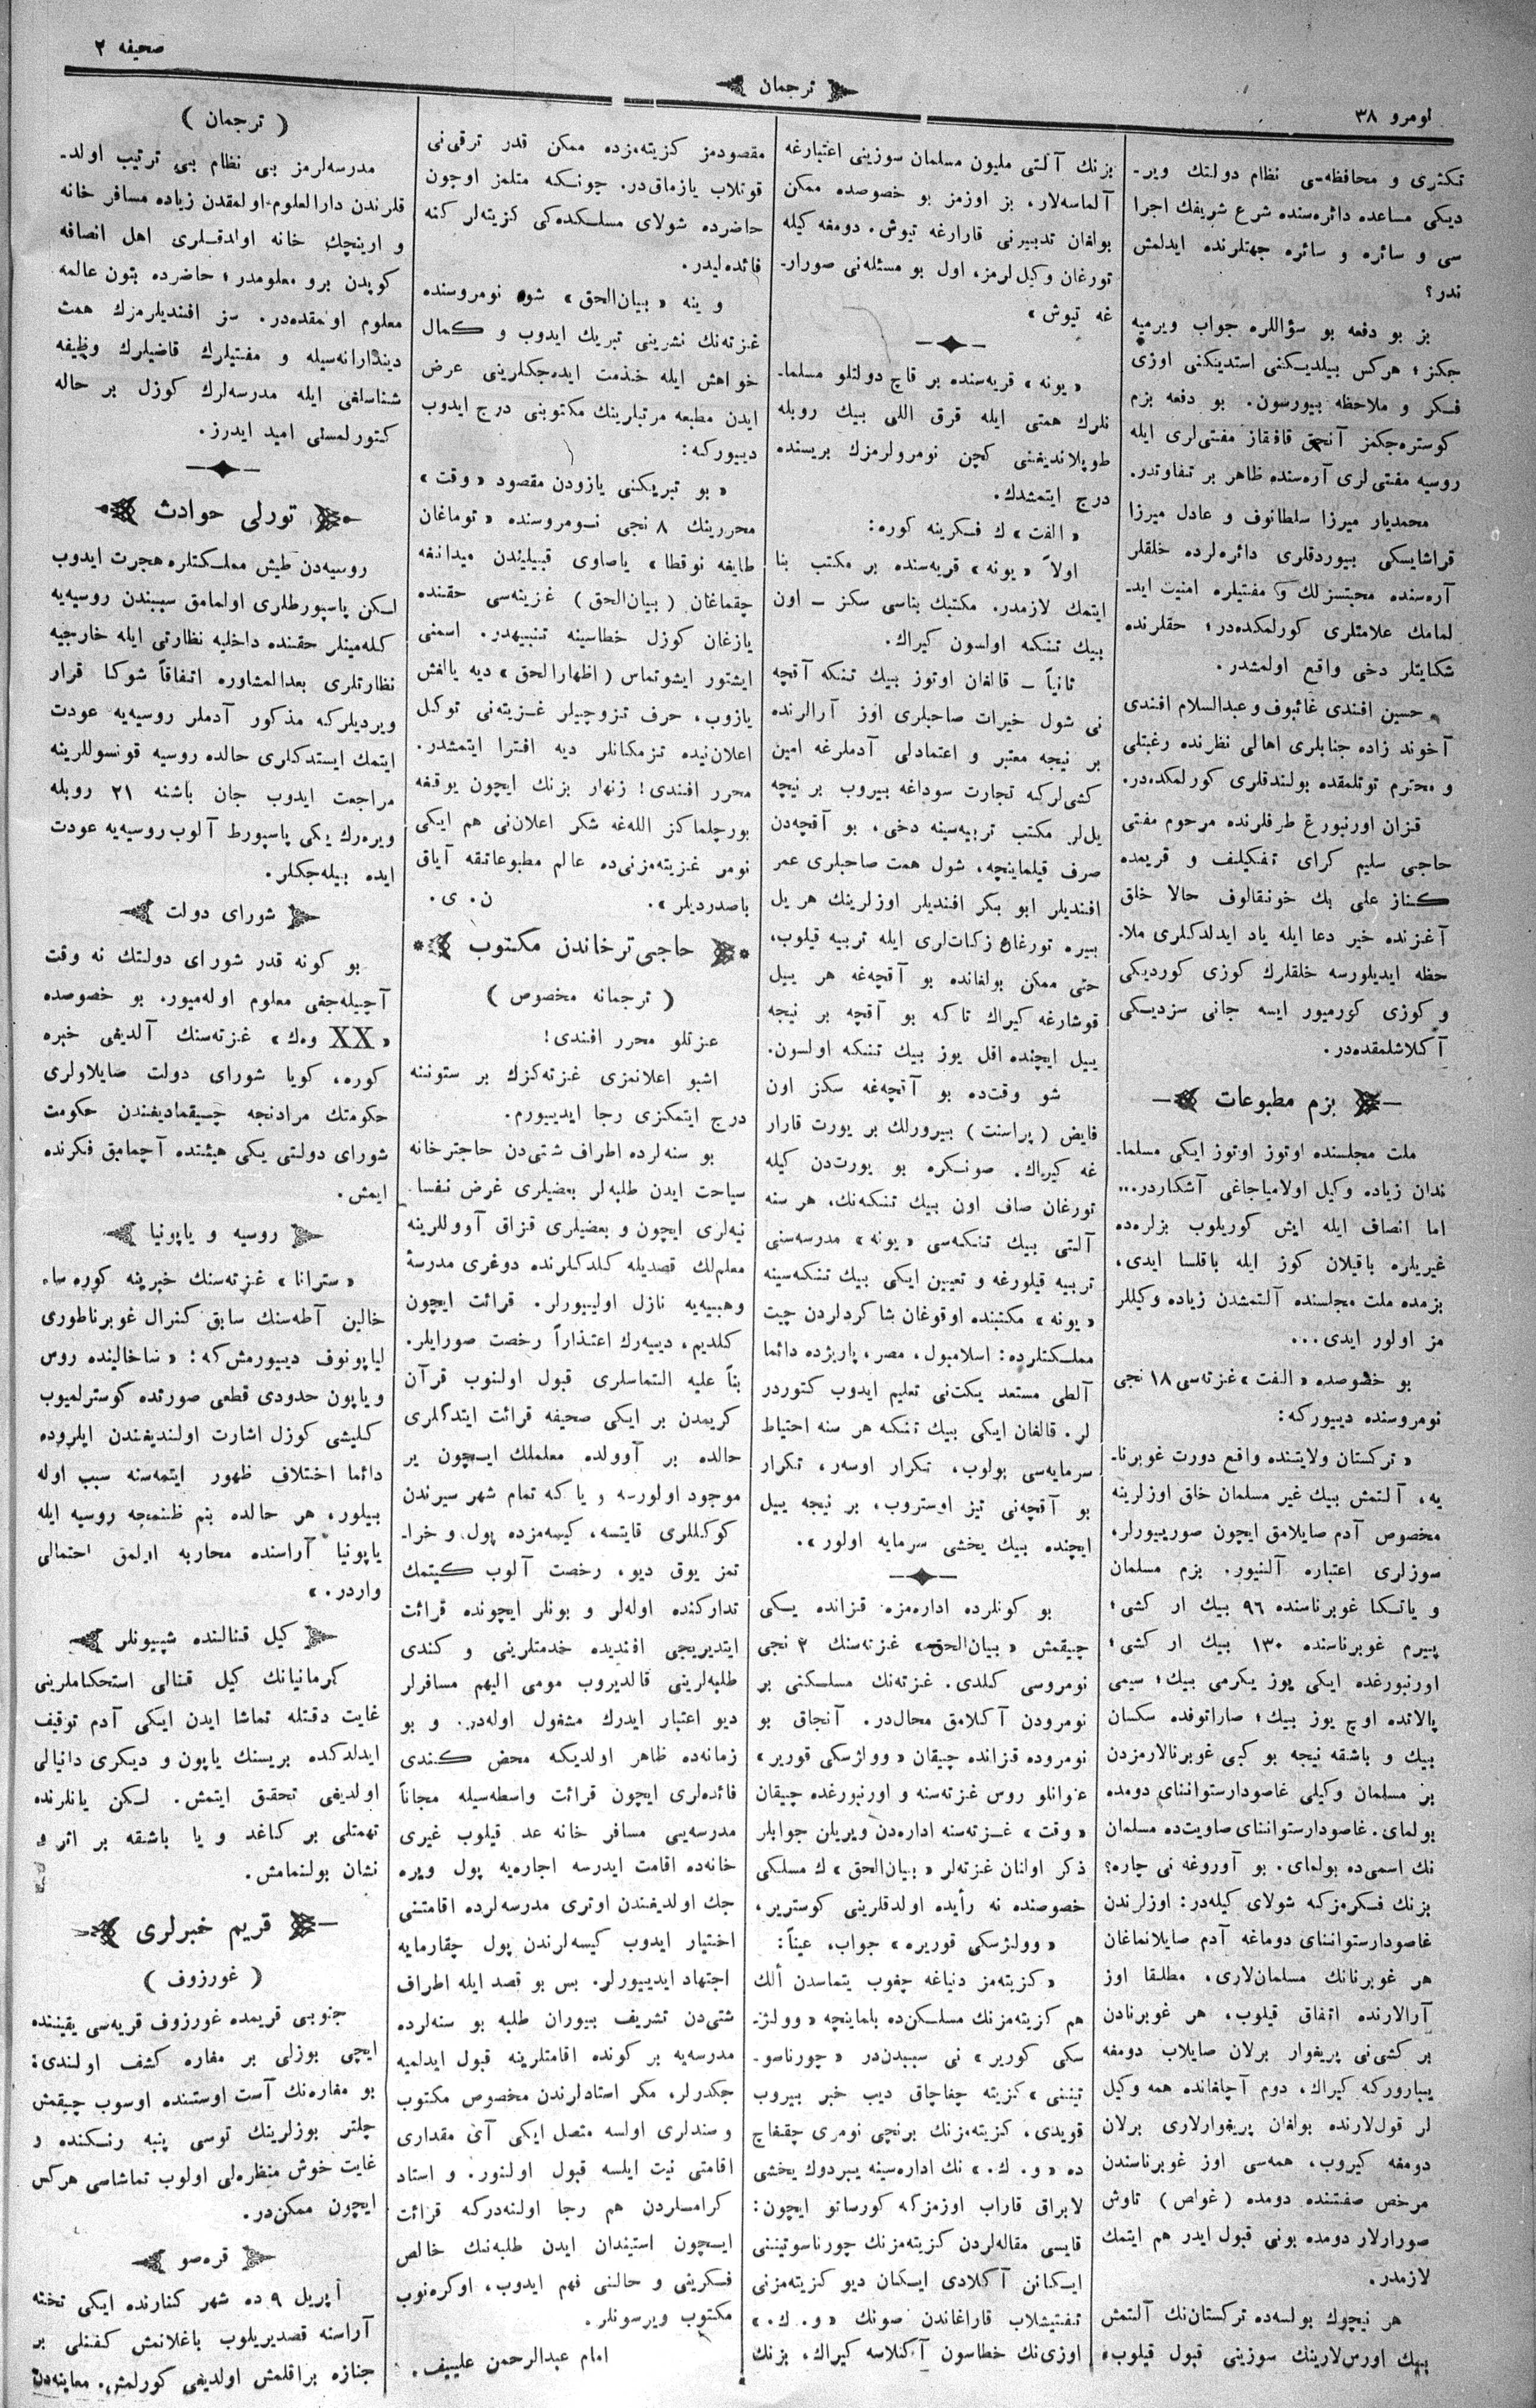 صحیفه ٢
ترجمان
نومرو ٣٨
تكثری و محافظه‌سی نظام دولتك ویر-
دیكی مساعده دائره‌سنده شرع شریفك اجرا
سی و سائره و سائره جهتلرنده ایدلمش
ندر؟
بز بو دفعه بو سؤاللره جواب ویرمیه
جكز؛ هركس بیلدیكنی استدیكنی اوزی
فكر و ملاحظه بیورسون. بو دفعه بزم
كوستره‌جكمز آنجق قافقاز مفتی‌لری ایله
روسیه مفتی لری آره‌سنده ظاهر بر تفاوتدر.
محمدیار میرزا سلطانوف و عادل میرزا
قراشایسكی بیوردقلری دائره‌لرده خلقلر
آره‌سنده محبتسزلك و مفتیلره امنیت اید-
لمامك علامتلری كورلمكده‌در؛ حقلرنده
شكایتلر دخی واقع اولمشدر.
حسین افندی غائبوف و عبدالسلام افندی
آخوند زاده جنابلری اهالی نظرنده رغبتلی
و محترم توتلمقده بولندقلری كورلمكده‌در.
قزان اورنبورغ طرفلرنده مرحوم مفتی
حاجی سلیم كرای تفكیلیف و قریمده
كناز علی بك خونقالوف حالا خلق
آغزنده خیر دعا ایله یاد ایدلدكلری ملا-
حظه ایدیلورسه خلقلرك كوزی كوردیكی
و كوزی كورمیور ایسه جانی سزدیكی
آكلاشلمقده‌در.
بزم مطبوعات
ملت مجلسنده اوتوز اوتوز ایكی مسلما-
ندان زیاده وكیل اولامیاجاغی آشكاردر...
اما انصاف ایله ایش كوریلوب بزلره‌ده
غیریلره باقیلان كوز ایله باقلسا ایدی،
بزمده ملت مجلسنده آلتمشدن زیاده وكیللر
مز اولور ایدی...
بو خصوصده «الفت» غزته‌سی ١٨ نجی
نومروسنده دیییوركه:
«تركستان ولایتنده واقع دورت غوبرنا-
یه، آلتمش بیك غیر مسلمان خلق اوزلرینه
مخصوص آدم صایلامق ایچون صورییورلر،
سوزلری اعتباره آلنیور. بزم مسلمان
و یاتكا غوبرناسنده ٩٦ بیك ار كشی؛
پیرم غوبرناسنده ١٣٠ بیك ار كشی؛
اورنبورغده ایكی یوز یكرمی بیك؛ سیمی
پالاتده اوچ یوز بیك؛ صاراتوفده سكسان
بیك و باشقه نیجه بو كبی غوبرنالارمزدن
بر مسلمان وكیلی غاصودارستوانناى دومده
بولمای. غاصودارستوانناى صاویت‌ده مسلمان
نك اسمی‌ده بولمای. بو آوروغه نی چاره؟
بزنك فكرمزكه شولای كیله‌در: اوزلرندن
غاصودارستوانناى دوماغه آدم صایلانماغان
هر غوبرنانك مسلمان‌لاری، مطلقا اوز
آرالارنده اتفاق قیلوب، هر غوبرنادن
بر كشی‌نی پریغوار برلان صایلاب دومغه
یبارورکه كیراك، دوم آچلغانده همه وكیل
لر قول‌لارنده بولغان پریغوارلاری برلان
دومغه كیروب، همه‌سی اوز غوبرناسندن
مرخص صفتنده دومده (غولص) تاوش
صورارلار دومده بونی قبول ایدر هم ایتمك
لازمدر.
هر نیچوك بولسه‌ده تركستان‌نك آلتمش
بیك اورس‌لارینك سوزینی قبول قیلوب،
بزنك آلتی ملیون مسلمان سوزینی اعتبارغه
آلماسه‌لار، بز اوزمز بو خصوصده ممكن
بولغان تدبیرنی قرارغه تیوش. دومغه كیله
تورغان وكیل لرمز، اول بو مسئله‌نی صورار-
غه تیوش»
«یونه» قریه‌سنده بر قاچ دولتلو مسلما-
نلرك همتی ایله قرق اللی بیك روبله
طوپلاندیغنی كچن نومرولرمزك بریسنده
درج ایتمشدك.
«الفت» ك فكرینه كوره:
اولاً «یونه» قریه‌سنده بر مكتب بنا
ایتمك لازمدر. مكتبك بناسی سكز - اون
بیك تنكه اولسون كیراك.
ثانیاً - قالغان اوتوز بیك تنكه آقچه
نی شول خیرات صاحبلری اوز آرالرنده
بر نیجه معتبر و اعتمادلی آدملرغه امین
كشی‌لركه تجارت سوداغه بیروب بر نیچه
یل‌لر مكتب تربیه‌سینه دخی، بو آقچه‌دن
صرف قیلماینچه، شول همت صاحبلری عمر
افندیلر ابو بكر افندیلر اوزلرینك هر یل
بیره تورغان زكات‌لری ایله تربیه قیلوب،
حتی ممكن بولغانده بو آقچه‌غه هر ییل
قوشارغه كیراك تاكه بو آقچه بر نیجه
ییل ایچنده اقل یوز بیك تنكه اولسون.
شو وقت‌ده بو آقچه‌غه سكز اون
فایض (پراسنت) بیرورلك بر یورت قارار
غه كیراك. صونكره بو یورت‌دن كیله
تورغان صاف اون بیك تنكه‌نك، هر سنه
آلتی بیك تنكه‌سی «یونه» مدرسه‌سنی
تربیه قیلورغه و تعیین ایكی بیك تنكه‌سینه
«یونه» مكتبنده اوقوغان شاكردلردن چیت
مملكتلرده: اسلامبول، مصر، پاریژده دائما
آلطی مستعد یكت‌نی تعلیم ایدوب كتوردر
لر. قالغان ایكی بیك تنكه هر سنه احتیاط
سرمایه‌سی بولوب، تكرار اوسەر، تكرار
بو آقچه‌نی تیز اوستروب، بر نیجه ییل
ایچنده بیك یخشی سرمایه اولور».
بو كونلرده اداره‌مزه قزانده یكی
چیقمش «بیان‌الحق» غزته‌سنك ٢ نجی
نومروسی كلدی. غزته‌نك مسلكنی بر
نومرودن آكلامق محال‌در. آنجاق بو
نومروده قزانده چیقان «وولژسكی قوریر»
عنوانلو روس غزته‌سنه و اورنبورغده چیقان
«وقت» غزته‌سنه اداره‌دن ویریلن جوابلر
ذكر اولنان غزته‌لر «بیان‌الحق» ك مسلكی
خصوصنده نه رأیده اولدقلرینی كوستریر،
«وولژسكی قوریره» جواب، عیناً:
«كزیته‌مز دنیاغه چغوب یتماسدن ألك
هم كزیته‌مزنك مسلكن‌ده بلماینچه «وولژ-
سكی كوریر» نی سببدن‌در «چورناسو-
تیننی» كزیته چغاچاق دیب خبر بیروب
قویدی، كزیته‌مزنك برنچی نومری چقغاچ
ده «و. ك.» نك اداره‌سینه یبردوك یخشی
لابراق قاراب اوزمزكه كورساتو ایچون:
قایسی مقاله‌لردن كزیته‌مزنك چورناسوتیننی
ایكانن آكلادی ایكان دیو كزیته‌مزنی
تفتیشلاب قاراغاندن صونك «و. ك.»
اوزی‌نك خطاسون آكلاسه كیراك، بزنك
مقصودمز كزیته‌مزده ممكن قدر ترقی‌نی
قوتلاب یازماق‌در. چونكه متلمز اوچون
حاضرده شولای مسلكده‌كی كزیته‌لر كنه
فائده‌لیدر.
و ینه «بیان‌الحق» شو نومروسنده
غزته‌نك نشرینی تبریك ایدوب و كمال
خواهش ایله خذمت ایده‌جكلرینی عرض
ایدن مطبعه مرتبلرینك مكتوبنی درج ایدوب
دیییوركه:
«بو تبریكنی یازودن مقصود «وقت»
محررینك ٨ نجی نومروسنده «توماغان
طایغه نوقطا» یاصاوی قبیلیندن میدانغه
چقماغان (بیان‌الحق) غزیته‌سی حقنده
یازغان كوزل خطاسینه تنبیهدر. اسمنی
ایشتور ایشوتماس (اظهارالحق) دیه یالغش
یازوب، حرف تزوجیلر غزیته‌نی توكل
اعلان‌نیده تزمكانلر دیه افترا ایتمشدر.
محرر افندی! زنهار بزنك ایچون یوقغه
بورچلماكز الله‌غه شكر اعلان‌نی هم ایكی
نومر غزیته‌مزنی‌ده عالم مطبوعاتقه آیاق
باصدردیلر». ن. ی.
حاجی ترخاندن مكتوب
(ترجمانه مخصوص)
عزتلو محرر افندی!
اشبو اعلانمزی غزته‌كزك بر ستوننه
درج ایتمكزی رجا ایدیبورم.
بو سنه‌لرده اطراف شتی‌دن حاجترخانه
سیاحت ایدن طلبه‌لر بعضیلری غرض نفسا
نیه‌لری ایچون و بعضیلری قزاق آووللرینه
معلم‌لك قصدیله كلدكلرنده دوغری مدرسهٔ
وهبیه‌یه نازل اولیبورلر. قرائت ایچون
كلدیم، دیبه‌رك اعتذاراً رخصت صورایلر.
بناً علیه التماسلری قبول اولنوب قرآن
كریمدن بر ایكی صحیفه قرائت ایتدكلری
حالده بر آوولده معلملك ایچون یر
موجود اولورسه و یا كه تمام شهر سیرندن
كوكللری قایتسه، كیسه‌مزده پول و خرا-
تمز یوق دیو، رخصت آلوب كیتمك
تداركنده اوله‌لر و بونلر ایچونده قرائت
ایتدیریجی افندیده خدمتلرینی و كندی
طلبه‌لرینی قالدیروب مومی الیهم مسافرلر
دیو اعتبار ایدرك مشغول اوله‌در. و بو
زمانه‌ده ظاهر اولدیكه محض كندی
فائده‌لری ایچون قرائت واسطه‌سیله مجاناً
مدرسه‌یی مسافر خانه عد قیلوب غیری
خانه‌ده اقامت ایدرسه اجاره‌یه پول ویره
جك اولدیغندن اوتری مدرسه‌لرده اقامتنی
اختیار ایدوب كیسه‌لرندن پول چقارمایه
اجتهاد ایدیبورلر. بس بو قصد ایله اطراف
شتی‌دن تشریف بیوران طلبه بو سنه‌لرده
مدرسه‌یه بر كونده اقامتلرینه قبول ایدلمیه
جكدرلر، مكر استادلرندن مخصوص مكتوب
و سندلری اولسه متصل ایكی آی مقداری
اقامتی نیت ایلسه قبول اولنور. و استاد
كراملردن هم رجا اولنه‌دركه قرائت
ایچون استیذان ایدن طلبه‌نك خالص
فكرینی و حالنی فهم ایدوب، اوكره‌نوب
مكتوب ویرسونلر.
امام عبدالرحمن علییف.
(ترجمان)
مدرسه‌لرمز بی نظام بی ترتیب اولد-
قلرندن دارالعلوم اولمقدن زیاده مسافر خانه
و ارینچك خانه اولدقلری اهل انصافه
كوبدن برو معلومدر؛ حاضرده بتون عالمه
معلوم اولمقده‌در. سز افندیلرمزك همت
دیندارانه‌سیله و مفتیلرك قاضیلرك وظیفه
شناسلغی ایله مدرسه‌لرك كوزل بر حاله
كتورلمسنی امید ایدرز.
تورلی حوادث
روسیه‌دن طیش مملكتلره هجرت ایدوب
لكن پاسپورطلری اولمامق سببندن روسیه‌یه
كله‌مینلر حقنده داخلیه نظارتی ایله خارجیه
نظارتلری بعدالمشاوره اتفاقاً شوكا قرار
ویردیلركه مذكور آدملر روسیه‌یه عودت
ایتمك ایستدكلری حالده روسیه قونسوللرینه
مراجعت ایدوب جان باشنه ٢١ روبله
ویره‌رك یكی پاسپورط آلوب روسیه‌یه عودت
ایده بیله‌جكلر.
شورای دولت
بو كونه قدر شورای دولتك نه وقت
آچیله‌جغی معلوم اوله‌میور. بو خصوصده
«XX وەك» غزته‌سنك آلدیغی خبره
كوره، كویا شورای دولت صایلاولری
حكومتك مرادنجه چیقمادیغندن حكومت
شورای دولتی یكی هیئتده آچمامق فكرنده
ایمش.
روسیه و یاپونیا
«سترانا» غزته‌سنك خبرینه كوره سا-
خالین آطه‌سنك سابق كنرال غوبرناطوری
لیاپونوف دیییورمش‌كه: «ساخالینده روس
و یاپون حدودی قطعی صورتده كوسترلمیوب
كلیشی كوزل اشارت اولندیغندن ایلروده
دائما اختلاف ظهور ایتمه‌سنه سبب اوله
بیلور، هر حالده بنم ظنمجه روسیه ایله
یاپونیا آراسنده محاربه اولمق احتمالی
واردر.»
كیل قنالنده شپیونلر
كرمانیانك كیل قنالی استحكاملرینی
غایت دقتله تماشا ایدن ایكی آدم توقیف
ایدلدكده بریسنك یاپون و دیكری دانیالی
اولدیغی تحقق ایتمش. لكن یانلرنده
تهمتلی بر كاغد و یا باشقه بر اثر و
نشان بولنمامش.
قریم خبرلری
(غورزوف)
جنوبی قریمده غورزوف قریه‌سی یقیننده
ایچی بوزلی بر مغاره كشف اولندی؛
بو مغاره‌نك آست اوستنده اوسوب چیقمش
چلتر بوزلرینك توسی پنبه رنكنده و
غایت خوش منظره‌لی اولوب تماشاسی هركس
ایچون ممكن‌در.
قره‌صو
أپریل ٩ ده شهر كنارنده ایكی تخته
آراسنه قصدیریلوب باغلانمش كفنلی بر
جنازه براقلمش اولدیغی كورلمش. معاینه‌دن